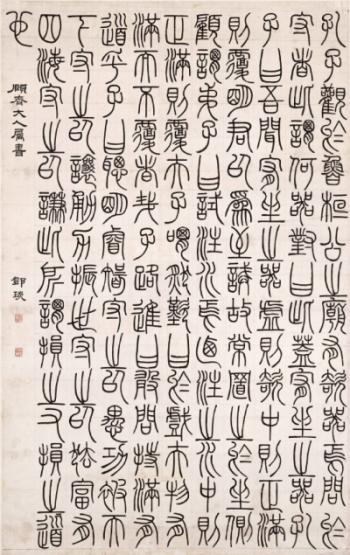 孔子觀於魯桓公之廟有欹器焉問於
守者此謂何器對曰此蓋宥坐之器孔
子曰吾聞宥坐之器虛則欹中則正滿
則覆明君以為至誡故常置之於坐側
顧謂弟子曰試注水焉迺注之水中則
正滿則覆夫子喟然歎曰於戲夫物有
滿而不覆者哉子路進曰敢問持滿有
道乎子曰聰明睿智守之以愚功被天
下守之以讓勇力振世守之以怯富有
四海守之以謙此所謂損之又損之道
也
顧齋大人屬書